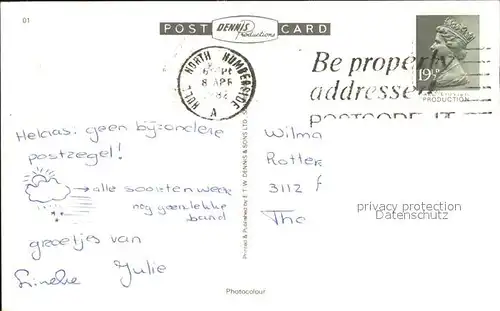 01
POST DENNIS Productions CARD
HULL NORTH HUMBERSIDE
8 APR
A
Be properly
addressed
POSTCODE IT
19½P
PRODUCTION
Helaas! geen bijzondere
postzegel!
→ alle soorten weer
nog geen lekke
band
groetjes van
Lineke Julie
Wilma
Rotter
3112
The
privacy protection
Datenschutz
Printed & Published by E. T. W. DENNIS & SONS LTD.
Photocolour